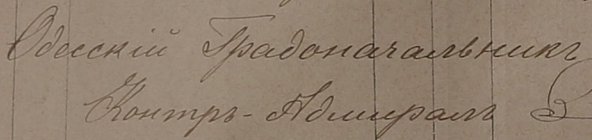 Одесскій Градоначальникъ
Контръ-Адмиралъ